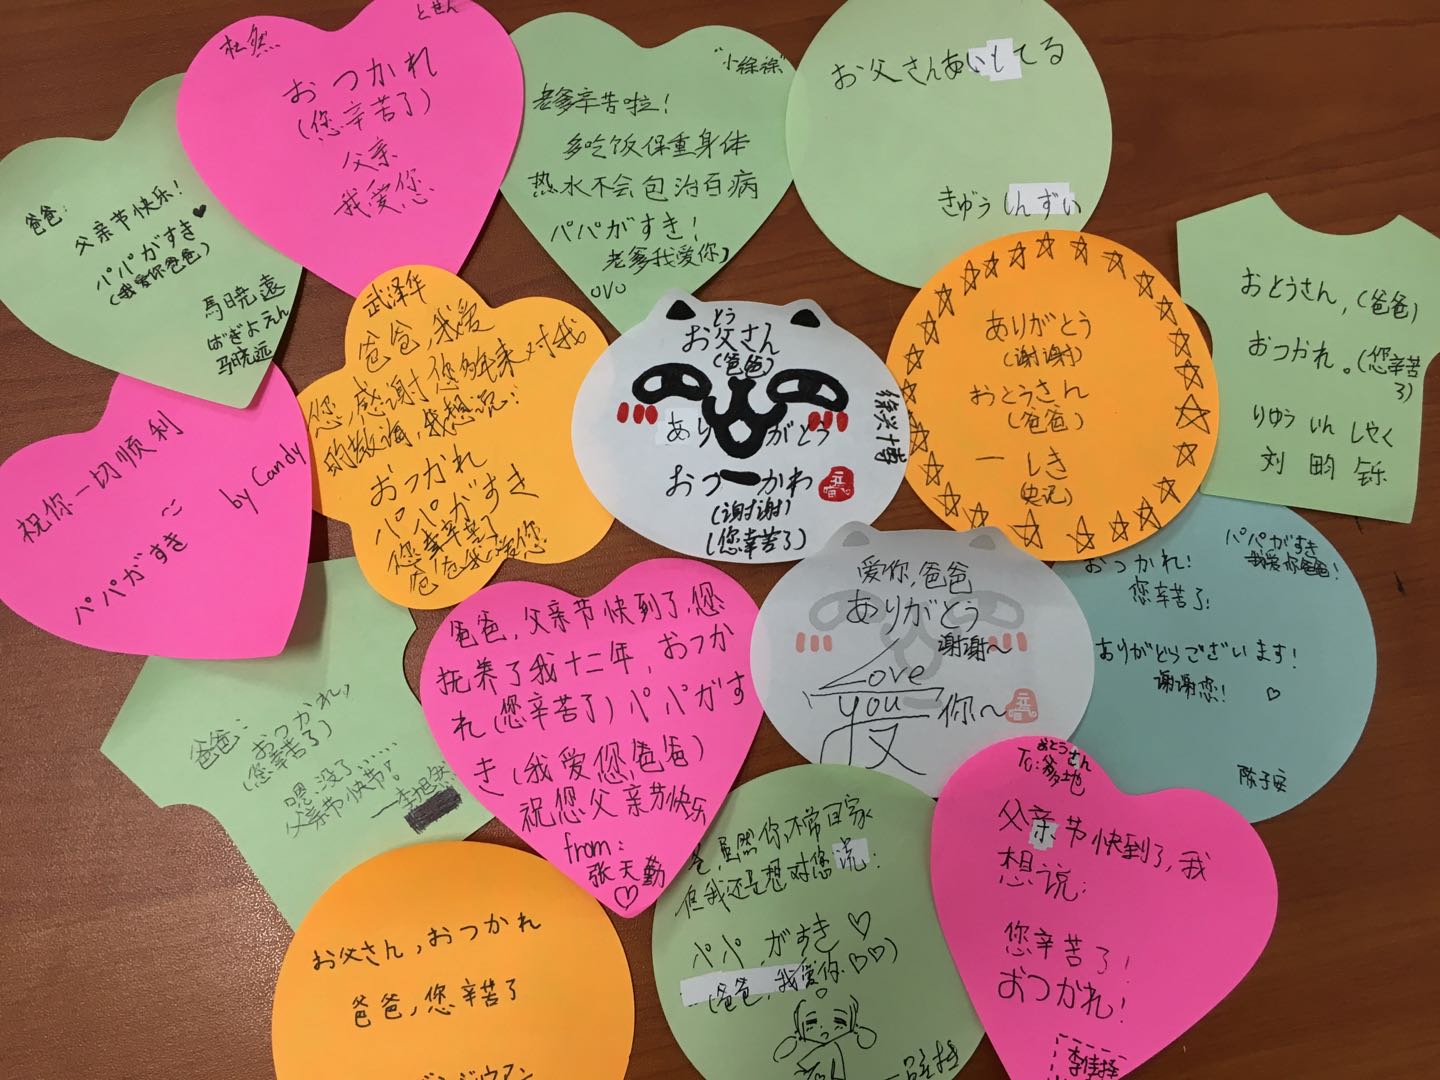 杜然
とぜん
おつかれ
(您辛苦了)
父亲
我爱您
"小徐徐"
老爹辛苦啦!
多吃饭保重身体
热水不会包治百病
パパがすき!
老爹我爱你)
OVO
お父さんあいしてる
きゅうしんずい
爸爸:
父亲节快乐!
パパがすき♥
(我爱你爸爸)
馬暁遠
ばぎょえん
马晓远
武泽华
爸爸,我爱
您,感谢您多年来对我
的教诲,我想说:
おつかれ
パパがすき
您辛苦了
爸爸我爱您
とう
お父さん
(爸爸)
ありがとう
おつかれ
(谢谢)
(您辛苦了)
徐兴博
ありがとう
(谢谢)
おとうさん
(爸爸)
一しき
(史记)
おとうさん,(爸爸)
おつかれ。(您辛苦
了)
りゅういんしゃく
刘畇铄
祝你一切顺利
パパがすき
by Candy
爸爸,父亲节快到了,您
抚养了我十二年,おつか
れ(您辛苦了)パパがす
き(我爱您,爸爸)
祝您父亲节快乐
from:
张天勤
爱你,爸爸
ありがとう
谢谢~
Love
you
你~
パパがすき
我爱你爸爸!
おつかれ!
您辛苦了!
ありがとうございます!
谢谢您!
陈子安
爸爸:
おつかれ,
(您辛苦了)
嗯…没了……
父亲节快节!
—李旭然
お父さん,おつかれ
爸爸,您辛苦了
爸,虽然你不常回家
但我还是想对您说:
パパ,がすき♡
(爸爸,我爱你♡♡)
おとうさん
To:
父亲节快到了,我
想说:
您辛苦了!
おつかれ!
李佳择